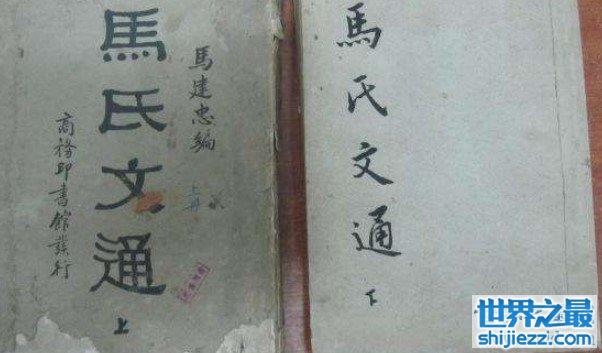 馬氏文通
上
馬建忠編
商務印書館發行
上冊
馬氏文通
下
世界之最
shijiezz.com